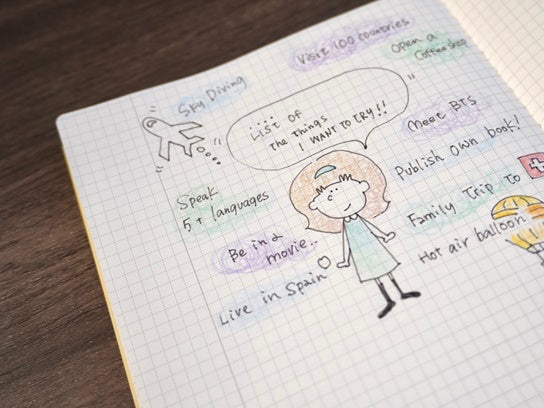 Visit 100 countries
Open a
Coffee shop
Sky Diving
List of
the things
I WANT TO TRY!!
Meet BTS
Publish Own book!
Speak
5+ languages
Family Trip to
Be in a
movie..
Hot air balloon
Live in Spain